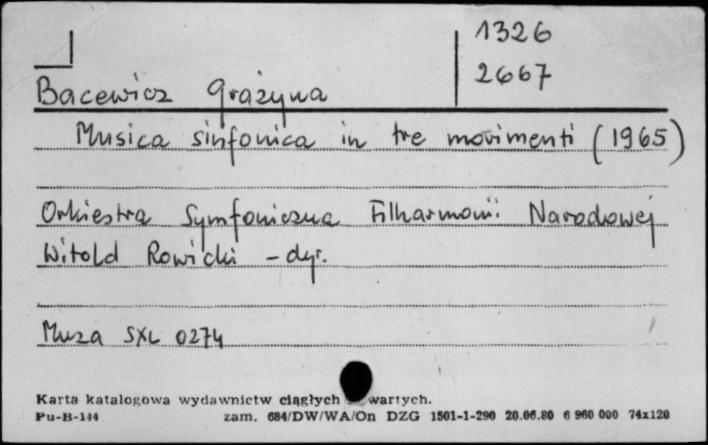 1326
2667
Bacewicz Grażyna
Musica sinfonica in tre movimenti (1965)
Orkiestra Symfoniczna Filharmonii Narodowej
Witold Rowicki - dyr.
Muza SXL 0274
Karta katalogowa wydawnictw ciągłych wartych.
Pu-B-144 zam. 684/DW/WA/On DZG 1501-1-290 20.06.80 6 960 000 74x120